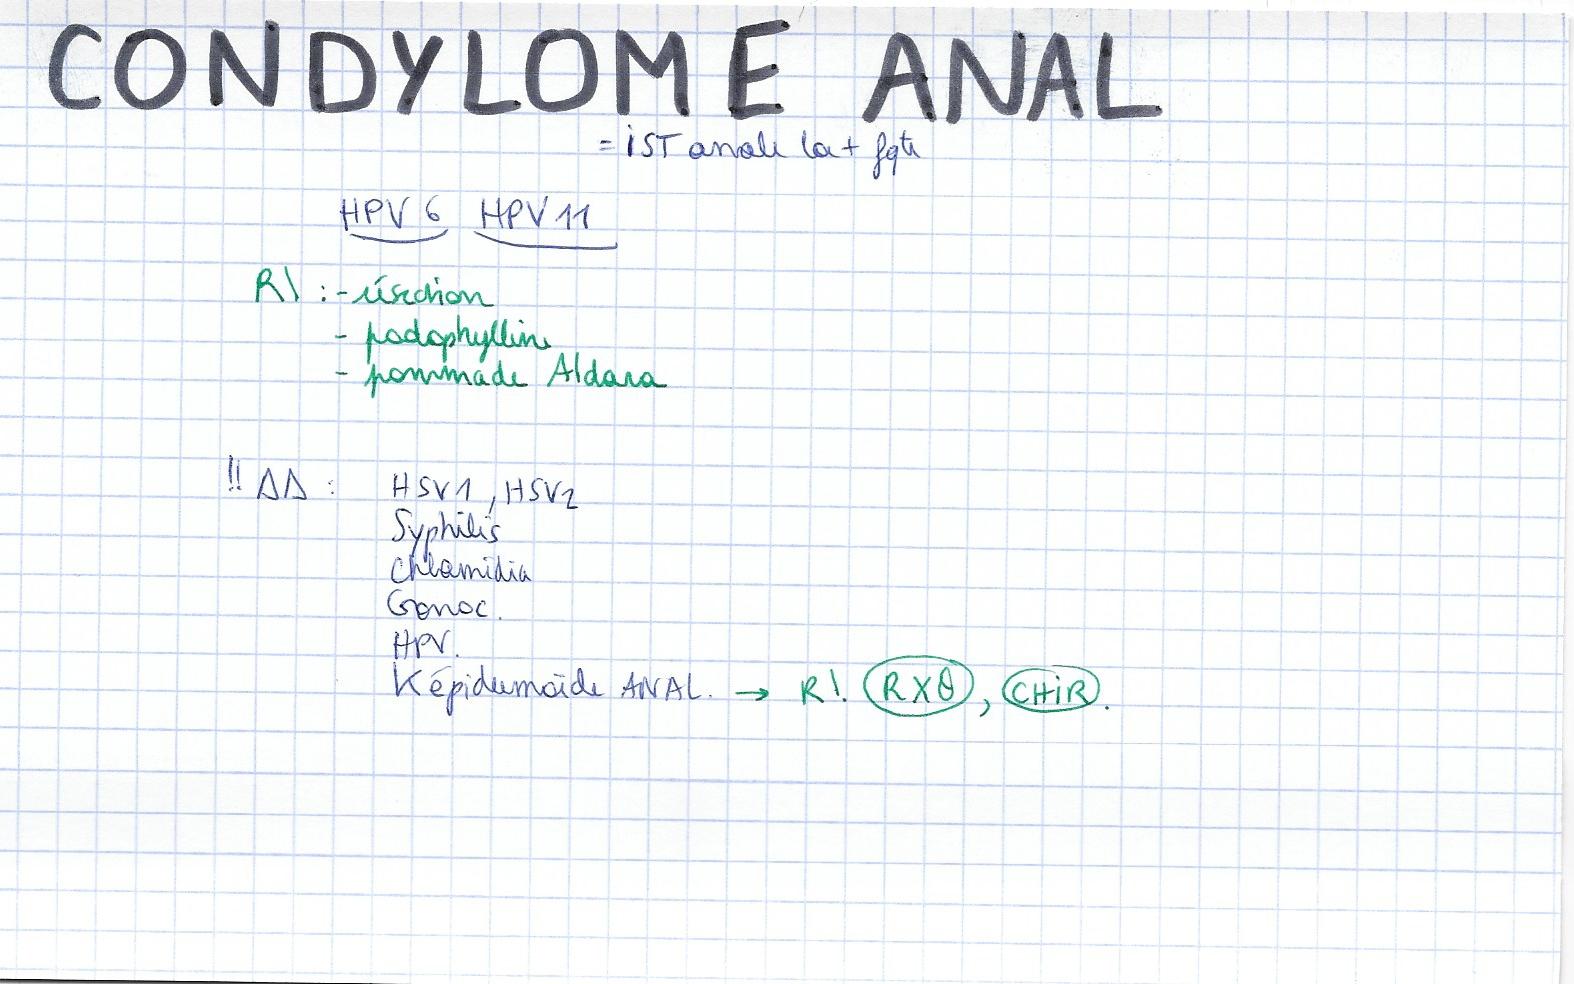 CONDYLOME ANAL
= IST anale la + fqte
HPV 6 HPV 11
R\ : - résection
- podophylline
- pommade Aldara
!! ΔΔ : HSV1, HSV2
Syphilis
Chlamidia
Gonoc.
HPV.
K épidermoïde ANAL. → R!. RXθ, CHiR.